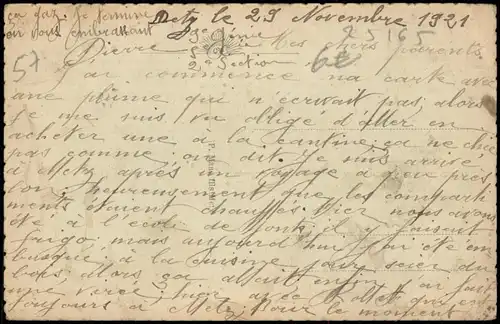 ça gaz. Je termine
en vous embrassant
Pierre
Metz le 29 Novembre 1921
9e Génie
2e Section
25165
57
Mes chers parents
J'ai commencé ma carte avec
une plume qui n'écrivait pas, alors
je me suis vu obligé d'aller en
acheter une à la cantine, ça ne chie
pas comme on dit. Je suis arrivé
à Metz après un voyage à peu près
bon, heureusement que les comparti
ments étaient chauffés. Hier nous avons
été à l'école de ponts, il y faisait
frigo, mais aujourd'hui j'ai été em
busqué à la cuisine pour scier du
bois, alors ça allait enfin j'ai fait
une virée hier avec qui est
toujours à Metz, pour le moment